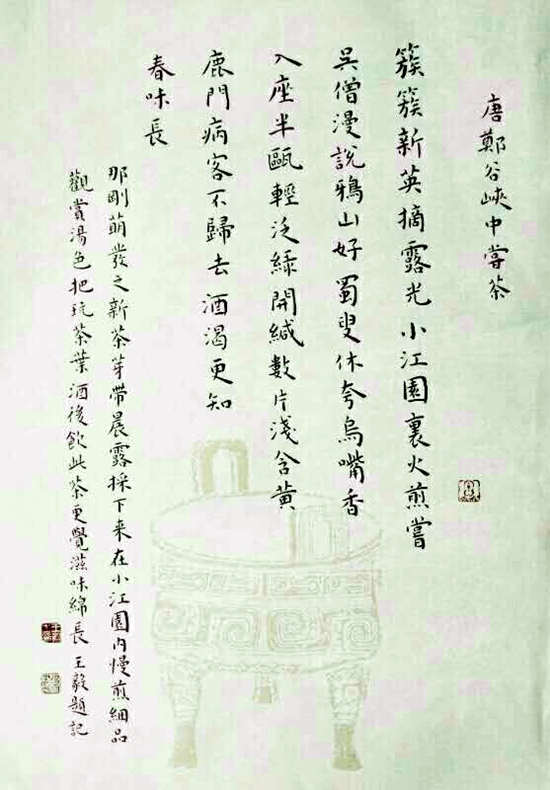 唐鄭谷峽中嘗茶
簇簇新英摘露光小江園裏火煎嘗
吳僧漫說鴉山好蜀叟休夸烏嘴香
入座半甌輕泛綠開緘數片淺含黃
鹿門病客不歸去酒渴更知
春味長
那剛萌發之新茶芽帶晨露採下来在小江園内慢煎細品
觀賞湯色把玩茶葉酒後飲此茶更覺滋味綿長王毅題記